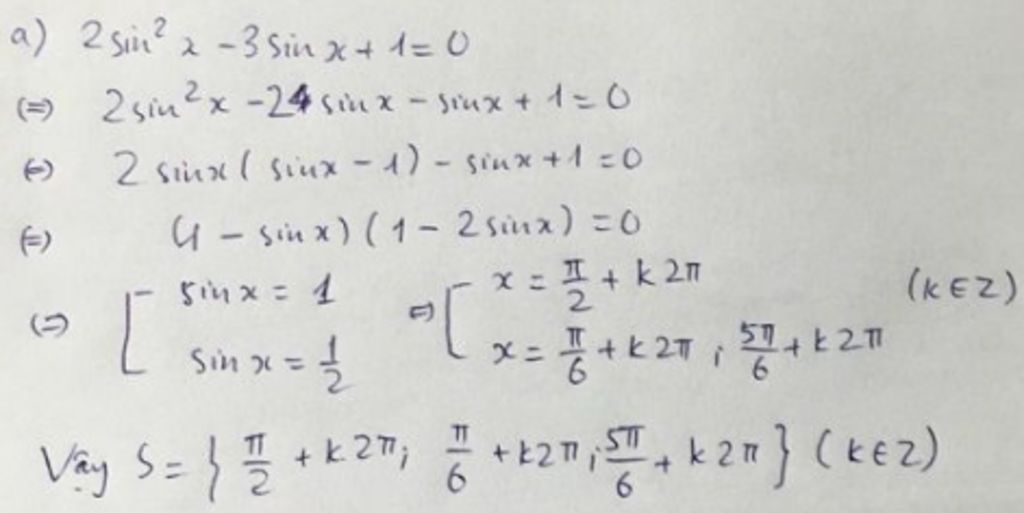 a) 2 sin² x - 3 sin x + 1 = 0
(=) 2 sin² x - 2 sin x - sin x + 1 = 0
(=) 2 sin x ( sin x - 1) - sin x + 1 = 0
(=) (1 - sin x) (1 - 2 sin x) = 0
(=) [ sin x = 1 (=) [ x = π/2 + k 2π (k ∈ Z)
sin x = 1/2 x = π/6 + k 2π ; 5π/6 + k 2π
Vậy S = { π/2 + k 2π; π/6 + k 2π ; 5π/6 + k 2π } (k ∈ Z)